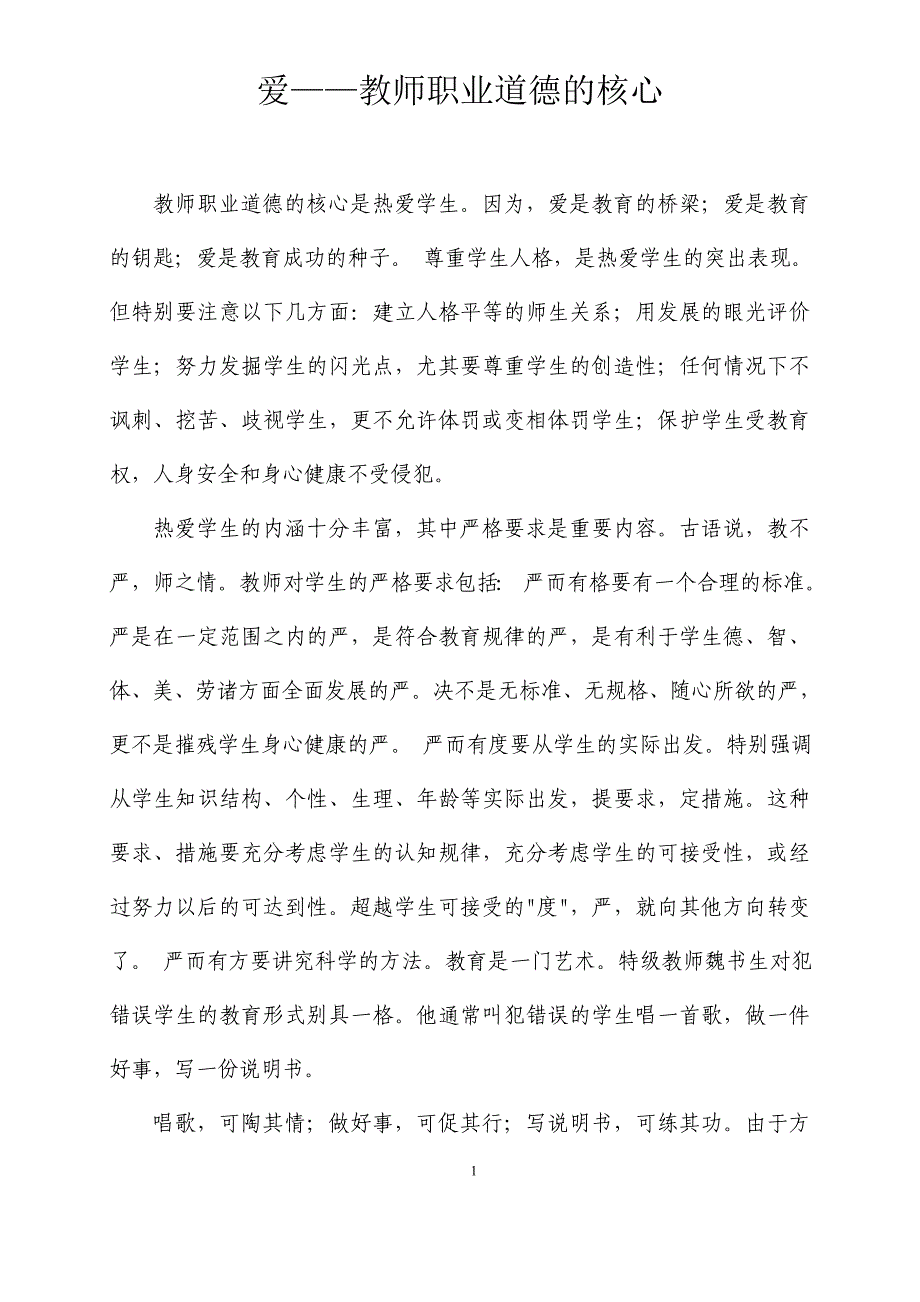 爱——教师职业道德的核心
教师职业道德的核心是热爱学生。因为，爱是教育的桥梁；爱是教育
的钥匙；爱是教育成功的种子。 尊重学生人格，是热爱学生的突出表现。
但特别要注意以下几方面：建立人格平等的师生关系；用发展的眼光评价
学生；努力发掘学生的闪光点，尤其要尊重学生的创造性；任何情况下不
讽刺、挖苦、歧视学生，更不允许体罚或变相体罚学生；保护学生受教育
权，人身安全和身心健康不受侵犯。
热爱学生的内涵十分丰富，其中严格要求是重要内容。古语说，教不
严，师之情。教师对学生的严格要求包括： 严而有格要有一个合理的标准。
严是在一定范围之内的严，是符合教育规律的严，是有利于学生德、智、
体、美、劳诸方面全面发展的严。决不是无标准、无规格、随心所欲的严，
更不是摧残学生身心健康的严。 严而有度要从学生的实际出发。特别强调
从学生知识结构、个性、生理、年龄等实际出发，提要求，定措施。这种
要求、措施要充分考虑学生的认知规律，充分考虑学生的可接受性，或经
过努力以后的可达到性。超越学生可接受的"度"，严，就向其他方向转变
了。 严而有方要讲究科学的方法。教育是一门艺术。特级教师魏书生对犯
错误学生的教育形式别具一格。他通常叫犯错误的学生唱一首歌，做一件
好事，写一份说明书。
唱歌，可陶其情；做好事，可促其行；写说明书，可练其功。由于方
1